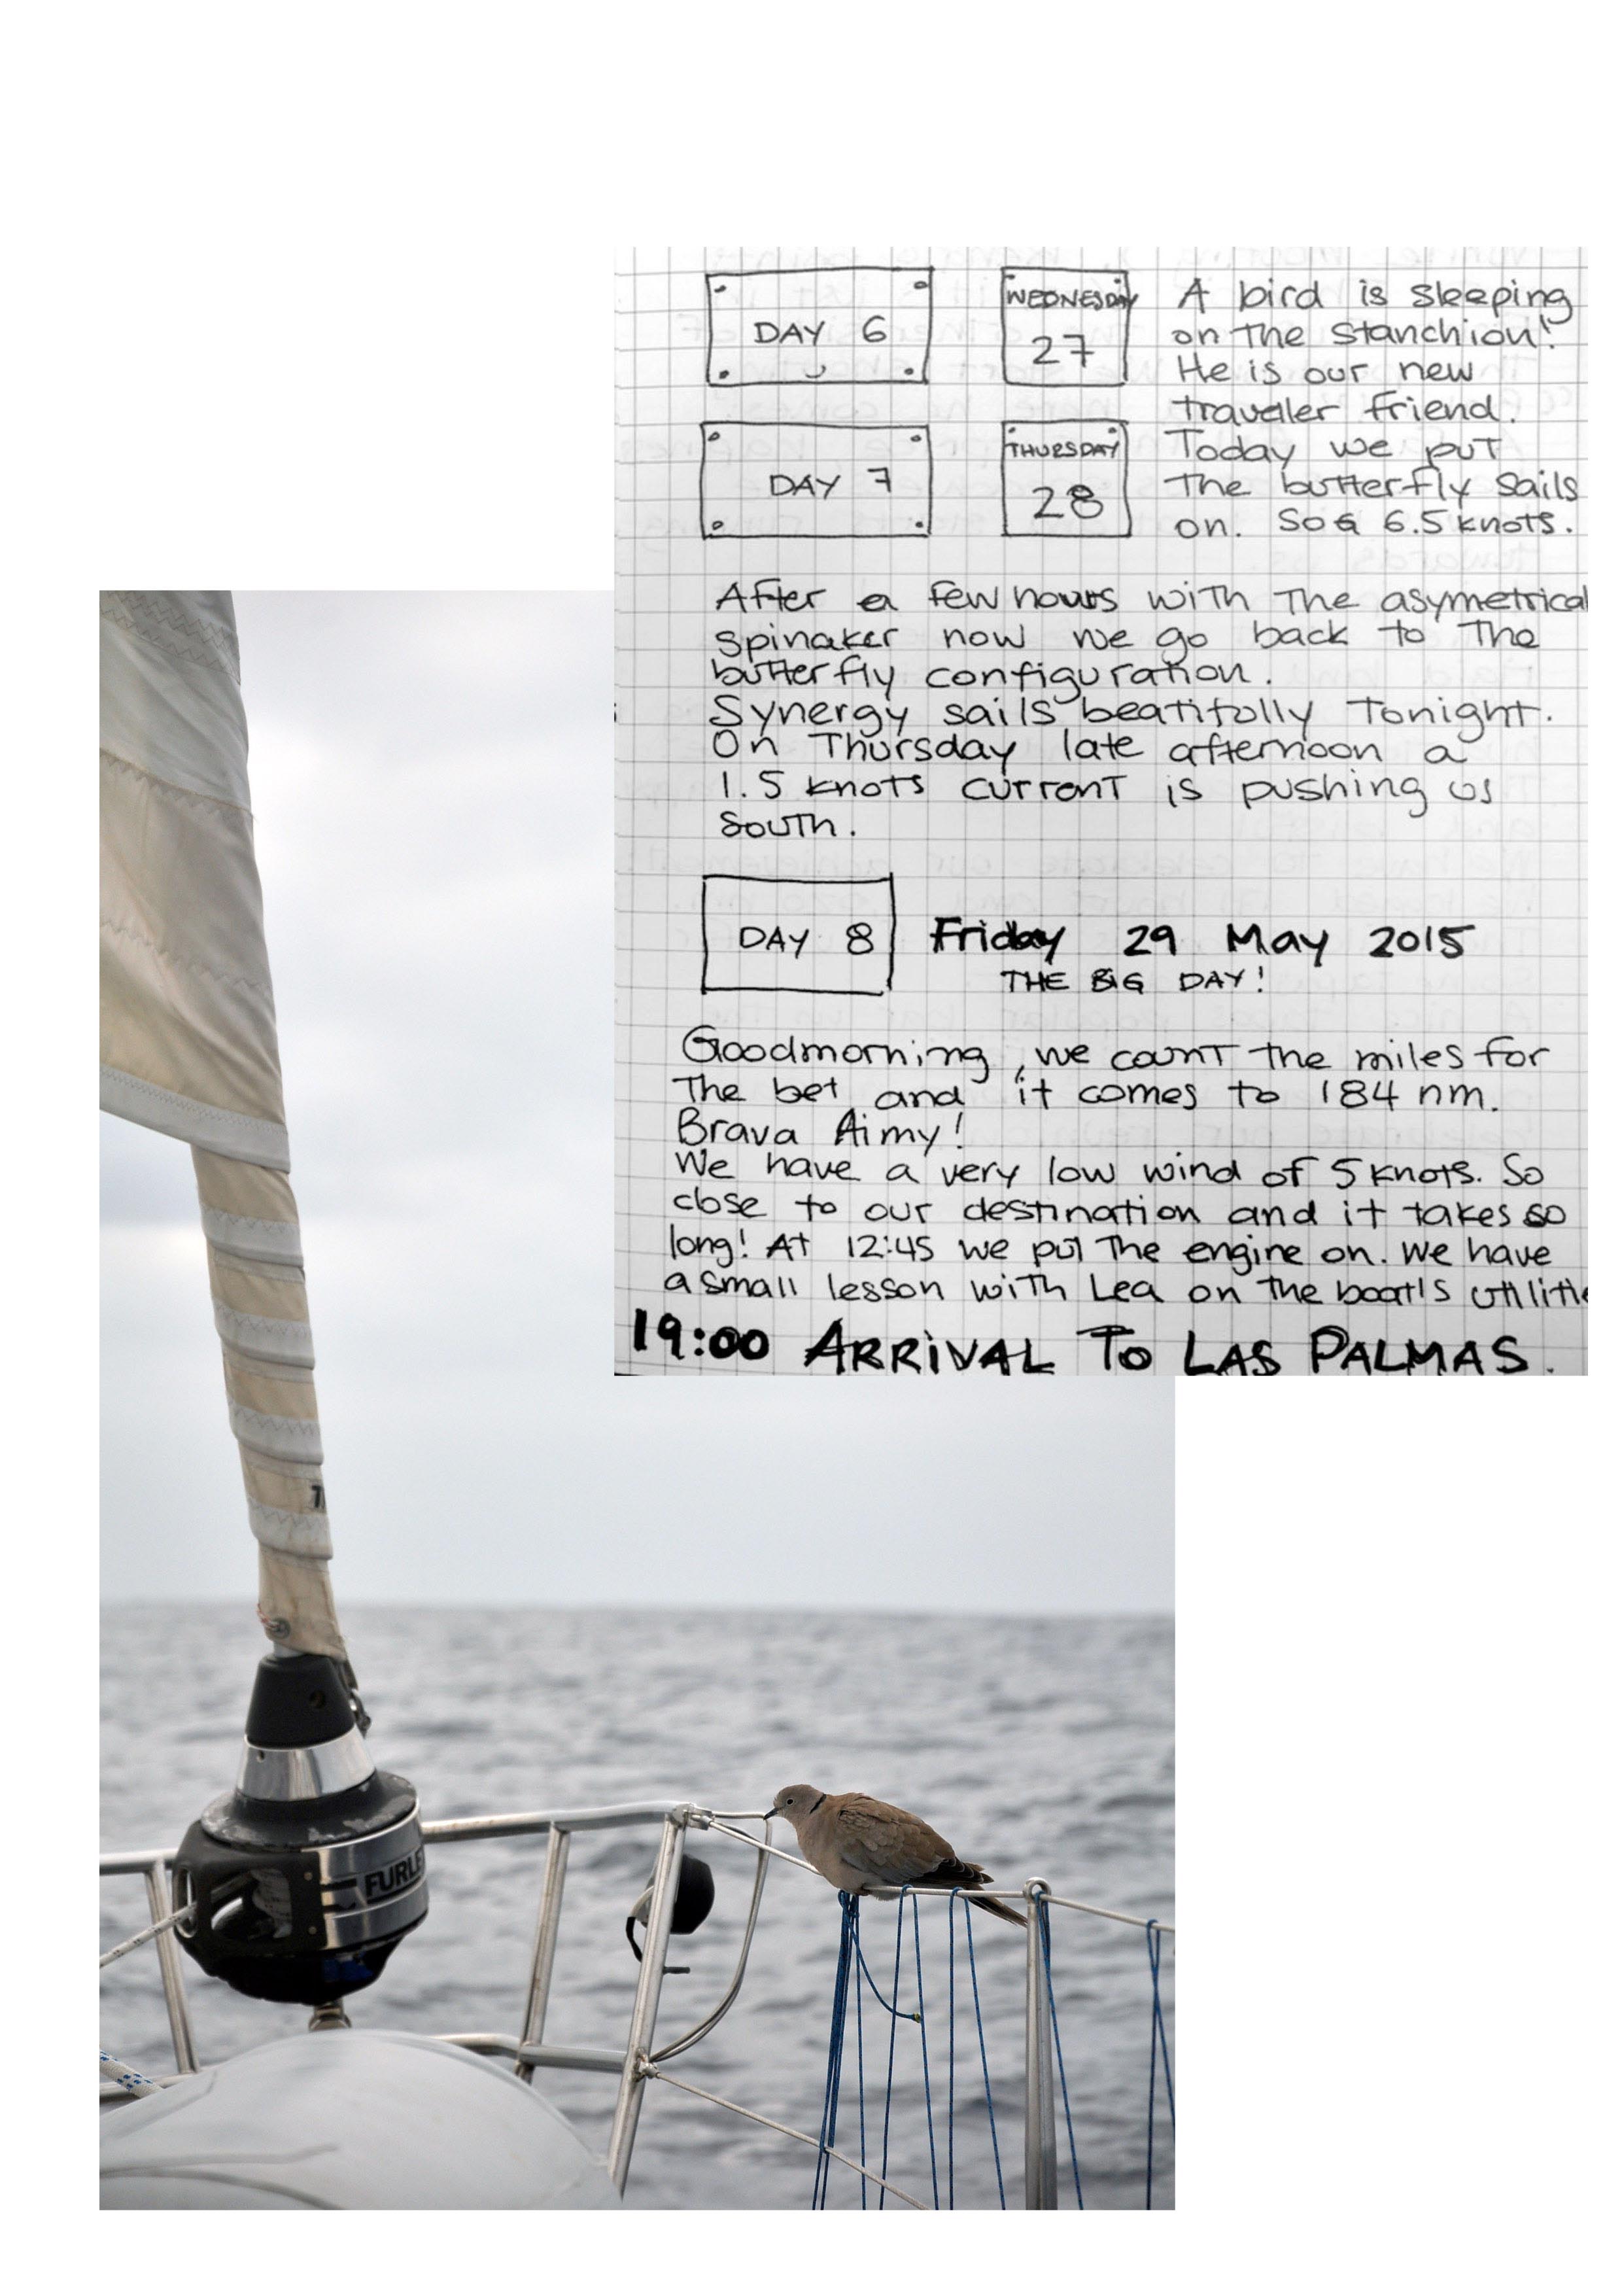 DAY 6
WEDNESDAY
27
A bird is sleeping
on the stanchion!
He is our new
traveller friend.
DAY 7
THURSDAY
28
Today we put
the butterfly sails
on. SOG 6.5 knots.
After a few hours with the asymetrical
spinaker now we go back to the
butterfly configuration.
Synergy sails beatifully tonight.
On Thursday late afternoon a
1.5 knots current is pushing us
south.
DAY 8
Friday 29 May 2015
THE BIG DAY!
Goodmorning, we count the miles for
the bet and it comes to 184 nm.
Brava Aimy!
We have a very low wind of 5 knots. So
close to our destination and it takes so
long! At 12:45 we put the engine on. We have
a small lesson with Lea on the boat's utilitie
19:00 ARRIVAL TO LAS PALMAS.
FURLE